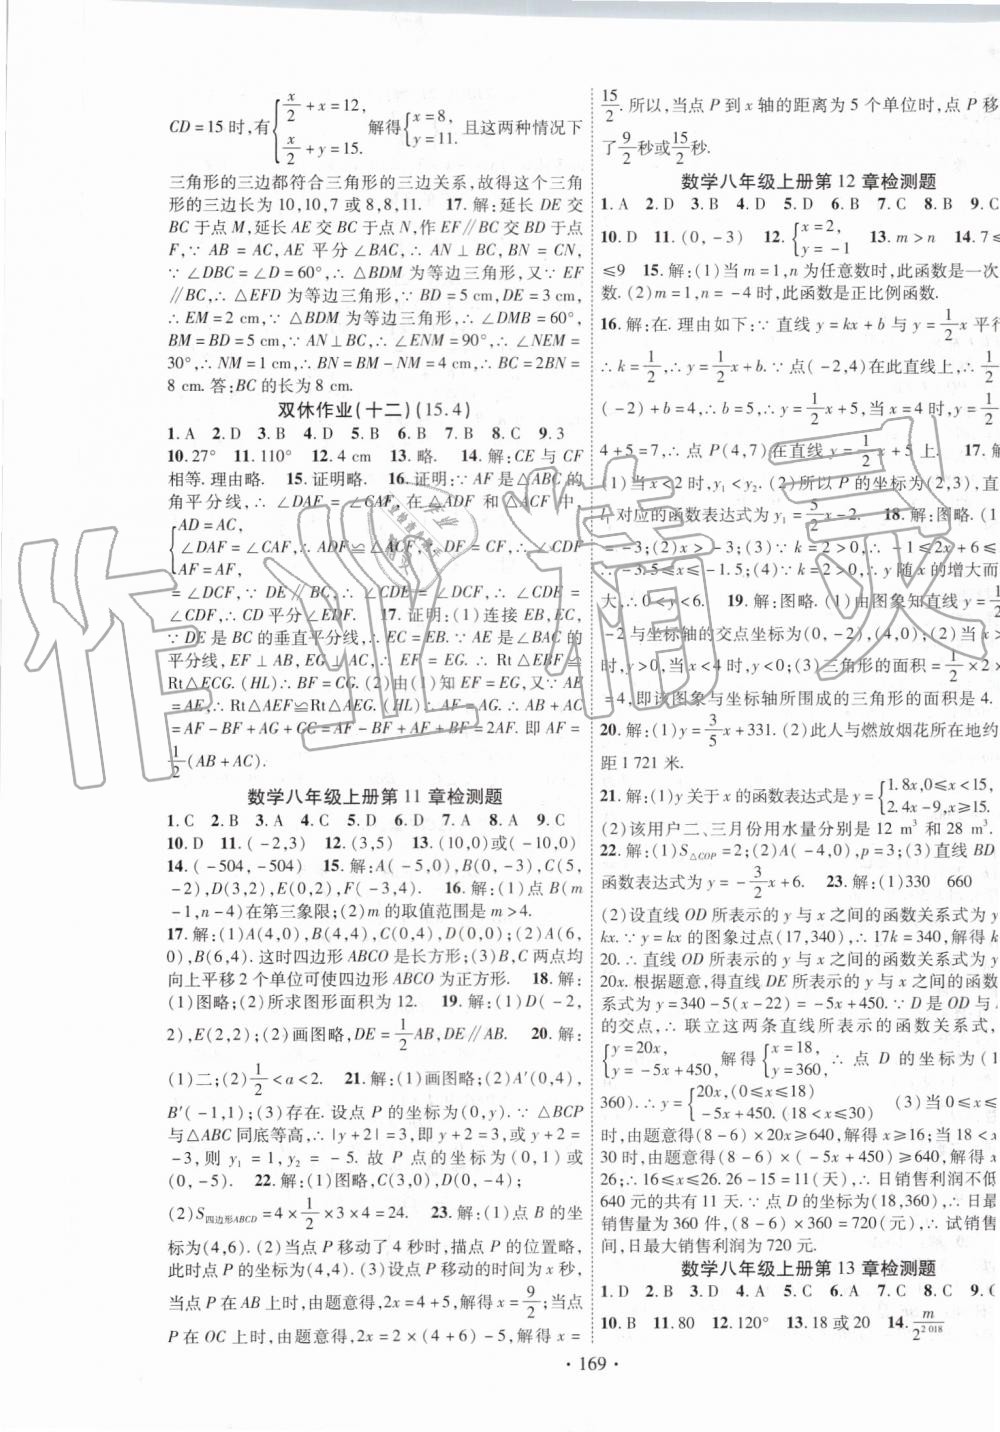 CD=15时,有{x/2+x=12, x/2+y=15. 解得{x=8, y=11. 且这两种情况下
三角形的三边都符合三角形的三边关系,故得这个三角
形的三边长为10,10,7或8,8,11. 17.解:延长DE交
BC于点M,延长AE交BC于点N,作EF∥BC交BD于点
F,∵AB=AC,AE平分∠BAC,∴AN⊥BC,BN=CN,
∵∠DBC=∠D=60°,∴△BDM为等边三角形,又∵EF
∥BC,∴△EFD为等边三角形,∵BD=5 cm,DE=3 cm,
∴EM=2 cm,∵△BDM为等边三角形,∴∠DMB=60°,
BM=BD=5 cm,∵AN⊥BC,∴∠ENM=90°,∴∠NEM=
30°,∴NM=1 cm,∴BN=BM-NM=4 cm,∴BC=2BN=
8 cm. 答:BC的长为8 cm.
双休作业(十二)(15.4)
1.A 2.D 3.B 4.D 5.D 6.B 7.B 8.C 9.3
10.27° 11.110° 12.4 cm 13.略. 14.解:CE与CF
相等.理由略. 15.证明略. 16.证明:∵AF是△ABC的
角平分线,∴∠DAF=∠CAF,在△ADF和△ACF中,
{AD=AC, ∠DAF=∠CAF, AF=AF, ∴△ADF≌△ACF,∴DF=CF,∴∠CDF
=∠DCF,∵DE∥BC,∴∠CDE=∠DCF,∴∠CDE=
∠CDF,∴CD平分∠EDF. 17.证明:(1)连接EB,EC,
∵DE是BC的垂直平分线,∴EC=EB.∵AE是∠BAC的
平分线,EF⊥AB,EG⊥AC,∴EF=EG.∴Rt△EBF≌
Rt△ECG.(HL)∴BF=CG.(2)由(1)知EF=EG,又∵AE
=AE,∴Rt△AEF≌Rt△AEG.(HL)∴AF=AG.∴AB+AC
=AF-BF+AG+CG=AF-BF+AF+BF=2AF.即AF=
1/2(AB+AC).
数学八年级上册第11章检测题
1.C 2.B 3.A 4.C 5.D 6.D 7.A 8.A 9.C
10.D 11.(-2,3) 12.(3,5) 13.(10,0)或(-10,0)
14.(-504,-504) 15.解:A(-5,0),B(0,-3),C(5,
-2),D(3,2),E(0,2),F(-3,4). 16.解:(1)点B(m
-1,n-4)在第三象限;(2)m的取值范围是m>4.
17.解:(1)A(4,0),B(4,4),C(0,4),D(0,0);(2)A(6,
0),B(6,4);这时四边形ABCO是长方形;(3)B,C两点均
向上平移2个单位可使四边形ABCO为正方形. 18.解:
(1)图略;(2)所求图形面积为12. 19.解:(1)D(-2,
2),E(2,2);(2)画图略,DE=1/2AB,DE∥AB. 20.解:
(1)二;(2)1/2<a<2. 21.解:(1)画图略;(2)A′(0,4),
B′(-1,1);(3)存在.设点P的坐标为(0,y).∵△BCP
与△ABC同底等高,∴|y+2|=3,即y+2=3或y+2=
-3,则y₁=1,y₂=-5.故P点的坐标为(0,1)或
(0,-5). 22.解:(1)图略,C(3,0),D(0,-4);
(2)S四边形ABCD=4×1/2×3×4=24. 23.解:(1)点B的坐
标为(4,6).(2)当点P移动了4秒时,描点P的位置略,
此时点P的坐标为(4,4).(3)设点P移动的时间为x秒,
当点P在AB上时,由题意得,2x=4+5,解得x=9/2;当点
P在OC上时,由题意得,2x=2×(4+6)-5,解得x=
15/2.所以,当点P到x轴的距离为5个单位时,点P移
了9/2秒或15/2秒.
数学八年级上册第12章检测题
1.A 2.D 3.B 4.A 5.D 6.B 7.C 8.B 9.C
10.D 11.(0,-3) 12.{x=2, y=-1 13.m>n 14.7≤
≤9 15.解:(1)当m=1,n为任意数时,此函数是一次
数.(2)m=1,n=-4时,此函数是正比例函数.
16.解:在.理由如下:∵直线y=kx+b与y=1/2x平行
∴k=1/2,∴y=1/2x+b.∵点(-2,4)在此直线上,∴
(-2)+b=4.∴b=5.∴y=1/2x+5,当x=4时,
4+5=7,∴点P(4,7)在直线y=1/2x+5上. 17.解
(1)当x<2时,y₁<y₂.(2)所以P的坐标为(2,3),直
对应的函数表达式为y₁=5/2x-2. 18.解:图略.
=-3;(2)x>-3;(3)∵k=2>0,∴-1≤2x+6≤
∴-3.5≤x≤-1.5;(4)∵k=2>0,∴y随x的增大而
大,∴0<y<6. 19.解:图略.(1)由图象知直线y=1/2
-2与坐标轴的交点坐标为(0,-2),(4,0);(2)当
时,y>0,当x<4时,y<0;(3)三角形的面积=1/2×2×
=4,即该图象与坐标轴所围成的三角形的面积是4.
20.解:(1)y=3/5x+331.(2)此人与燃放烟花所在地约
距1 721米.
21.解:(1)y关于x的函数表达式是y={1.8x,0≤x<15, 2.4x-9,x≥15.
(2)该用户二、三月份用水量分别是12 m³和28 m³.
22.解:(1)S△COP=2;(2)A(-4,0),p=3;(3)直线BD
函数表达式为y=-3/2x+6. 23.解:(1)330 660
(2)设直线OD所表示的y与x之间的函数关系式为y
kx.∵y=kx的图象过点(17,340),∴17k=340,解得k
20.∴直线OD所表示的y与x之间的函数关系式为y
20x.根据题意,得直线DE所表示的y与x之间的函数
系式为y=340-5(x-22)=-5x+450.∵D是OD与
的交点,∴联立这两条直线所表示的函数关系式,
{y=20x, y=-5x+450, 解得{x=18, y=360, ∴点D的坐标为(1
360).∴y={20x,(0≤x≤18) -5x+450.(18<x≤30) (3)当0≤x≤
时,由题意得(8-6)×20x≥640,解得x≥16;当18<x
30时,由题意得(8-6)×(-5x+450)≥640,解得x
26;∴16≤x≤26.26-15=11(天),∴日销售利润不低
640元的共有11天.∵点D的坐标为(18,360),∴日最
销售量为360件,(8-6)×360=720(元),∴试销售
间,日最大销售利润为720元.
数学八年级上册第13章检测题
1.D 2.B 3.D 4.A 5.C 6.A 7.C 8.C 9.C
10.B 11.80 12.120° 13.18或20 14.m/2^2 018
·169·
作业精灵